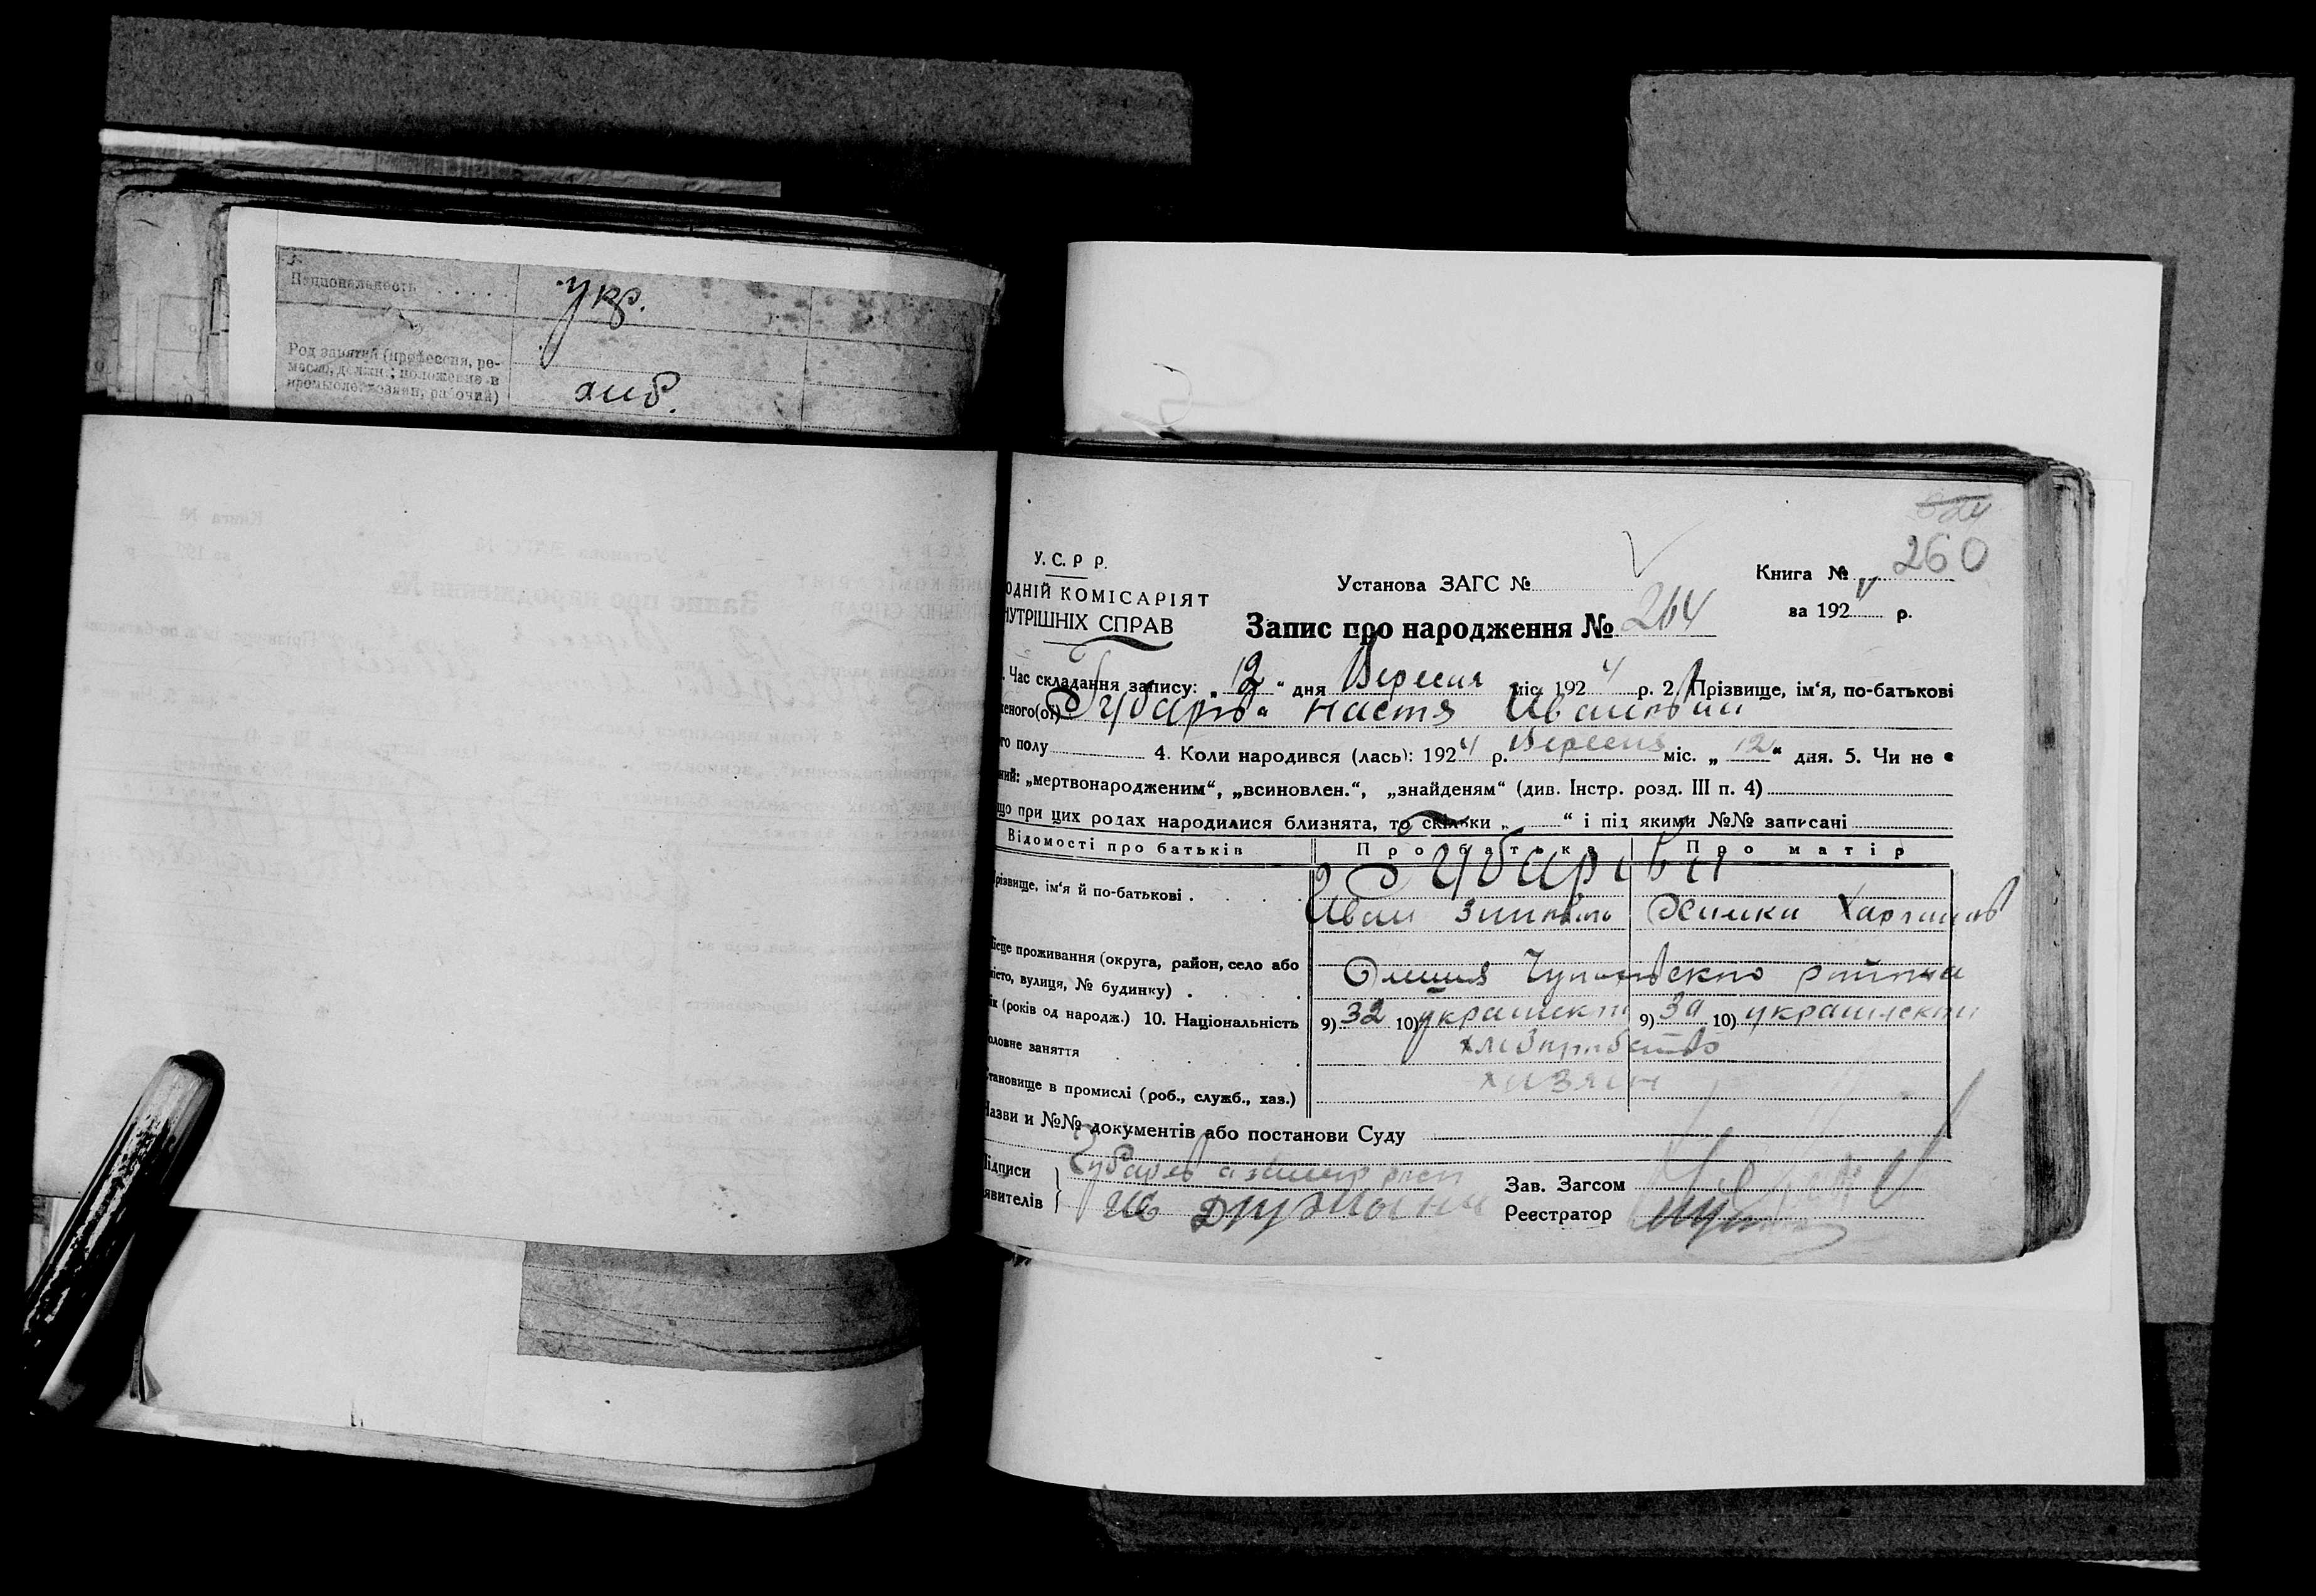 Национальность . . . . . укр.
Род занятий (профессия, ре-
месло, должн.; положение в
промысле: хозяин, рабочий) хлиб.
260
У. С. Р Р.
ОДНІЙ КОМІСАРІЯТ
НУТРІШНІХ СПРАВ
Установа ЗАГС №
Книга №
за 1924 р.
Запис про народження № 264
Час складання запису: „12“ дня Вересня міс. 1924 р. 2. Прізвище, ім‘я, по-батькові
еного(ої) Губарь Настя Ивановна
го полу 4. Коли народився (лась): 1924 р. Вересня міс. „12“ дня. 5. Чи не є
ний: „мертвонародженим“, „всиновлен.“, „знайденям“ (див. Інстр. розд. III п. 4)
що при цих родах народилися близнята, то скільки „ “ і під якими №№ записані
Відомості про батьків Про батька Про матір
різвище, ім‘я й по-батькові . Губарівн
Иван
ісце проживання (округа, район, село або
місто, вулиця, № будинку) . района
ік (років од народж.) 10. Національність 9) 32 10) украинск 9) 30 10) украинск
оловне заняття хлиборобство
тановище в промислі (роб., служб., хаз.) хазяин
Назви и №№ документів або постанови Суду
ідписи Губарев
явителів
Зав. Загсом
Реєстратор